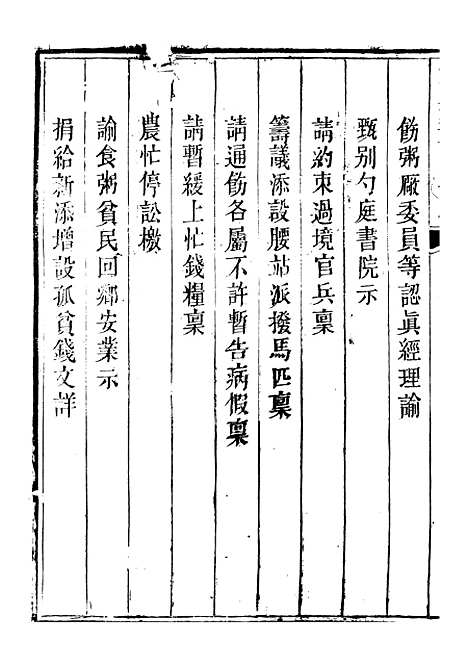 飭粥厰委員等認眞經理諭
甄别勺庭書院示
請約束過境官兵稟
籌議添設腰站派撥馬匹稟
請通飭各屬不許暫告病假稟
請暫緩上忙錢糧稟
農忙停訟檄
諭食粥貧民回鄉安業示
捐給新添增設孤貧錢文詳